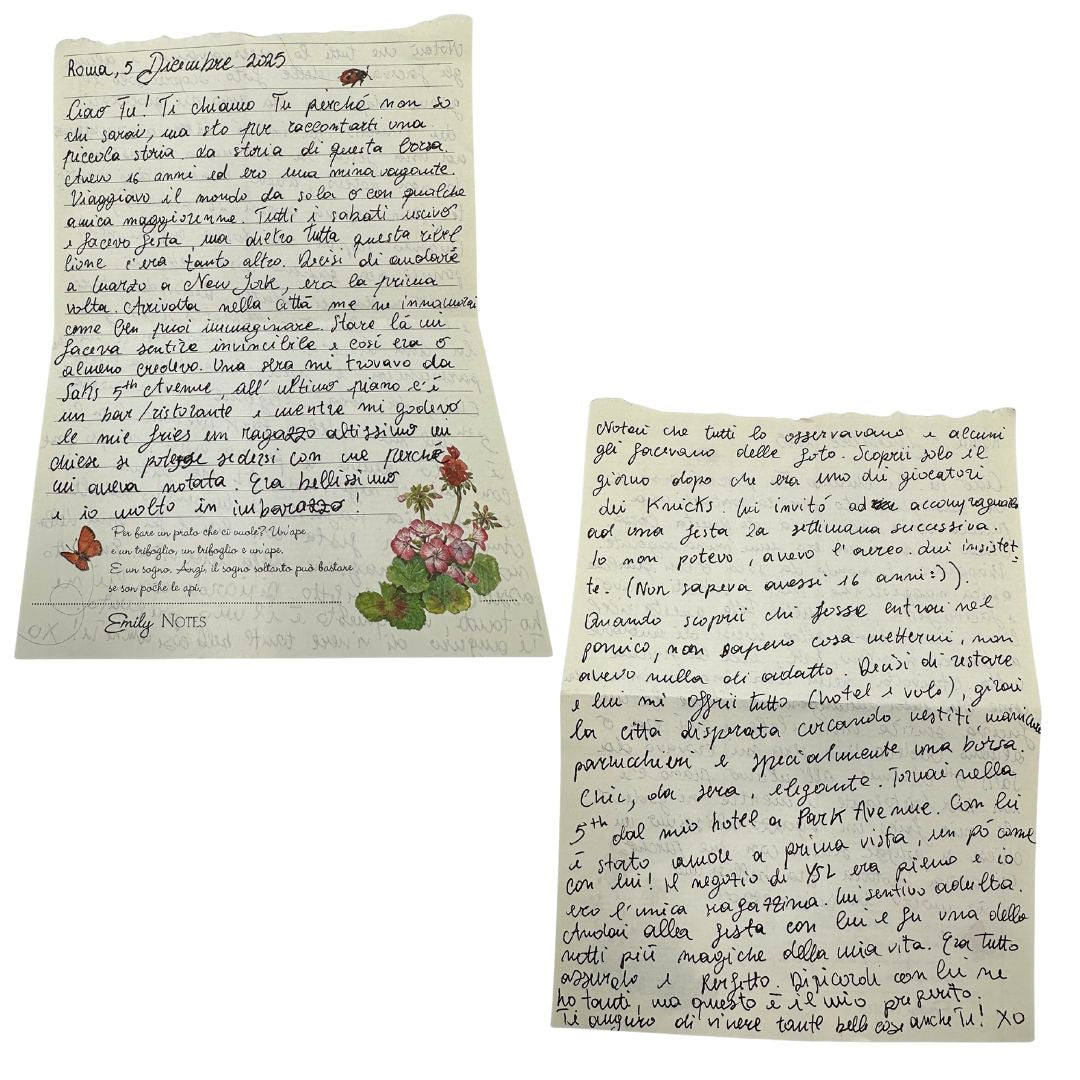 Roma, 5 Dicembre 2025
Ciao Tu! Ti chiamo Tu perché non so
chi sarai, ma sto per raccontarti una
piccola storia. La storia di questa borsa.
Avevo 16 anni ed ero una mina vagante.
Viaggiavo il mondo da sola o con qualche
amica maggiorenne. Tutti i sabati uscivo
e facevo festa, ma dietro tutta questa ribel
lione c'era tanto altro. Decisi di andare
a Marzo a New York, era la prima
volta. Arrivata nella città me ne innamorai
come ben puoi immaginare. Stare là mi
faceva sentire invincibile e così era o
almeno credevo. Una sera mi trovavo da
Saks 5th Avenue, all'ultimo piano c'è
un bar/ristorante e mentre mi godevo
le mie fries un ragazzo altissimo mi
chiese se potesse sedersi con me perché
mi aveva notata. Era bellissimo
e io molto in imbarazzo!
Per fare un prato che ci vuole? Un'ape
e un trifoglio, un trifoglio e un'ape.
E un sogno. Anzi, il sogno soltanto può bastare
se son poche le api.
Emily NOTES
Notai che tutti lo osservavano e alcuni
gli facevano delle foto. Scoprii solo il
giorno dopo che era uno dei giocatori
dei Knicks. Mi invitò ad accompagnarlo
ad una festa la settimana successiva.
Io non potevo, avevo l'aereo. Lui insistet-
te. (Non sapeva avessi 16 anni:)).
Quando scoprii chi fosse entrai nel
panico, non sapevo cosa mettermi, non
avevo nulla di adatto. Decisi di restare
e lui mi offrii tutto (hotel e volo), girai
la città disperata cercando vestiti, manicure
parrucchieri e specialmente una borsa.
Chic, da sera, elegante. Tornai nella
5th dal mio hotel a Park Avenue. Con lei
è stato amore a prima vista, un pò come
con lui! Il negozio di YSL era pieno e io
ero l'unica ragazzina. Mi sentivo adulta.
Andai alla festa con lui e fu una delle
notti più magiche della mia vita. Era tutto
assurdo e perfetto. Di ricordi con lui ne
ho tanti, ma questo è il mio preferito.
Ti auguro di vivere tante belle cose anche Tu! XO